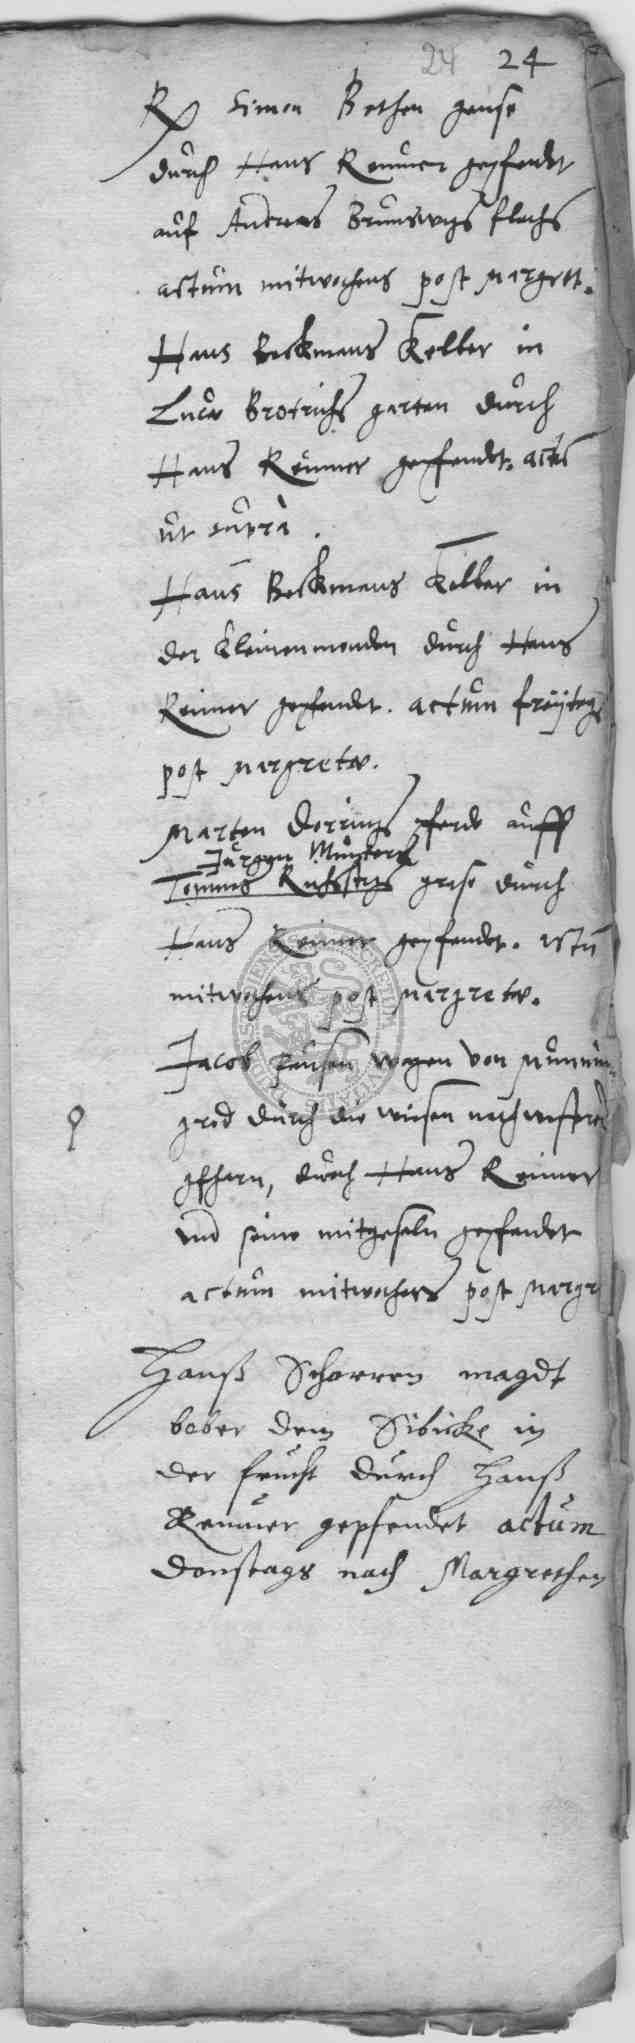 24 24
Rx Simon Bethen gense
durch Hans Renner gepfendt
auf Andreas Brunswigs flachs
actum mitwochens post Margret.
Hans Beckmans Kelber in
Luce Brotrichs garten durch
Hans Renner gepfendt. actu
ut supra.
Hans Beckmans Kelber in
der Kleinen wenden durch Hans
Renner gepfendt. actum freytags
post Margrete.
Marten Dorings pferde auff
Jurgen Munters
Tommes grase durch
Hans Renner gepfendt. actu
mitwochens post Margrete.
Jacob wagen von
grod durch die wiesen nach
gfharn, durch Hans Renner
und seine mitgeseln gepfendt
actum mitwochens post Margr
Hanß Schorren magdt
bober dem Sibicke in
der frucht durch Hanß
Renner gepfendet actum
Donstags nach Margrethen